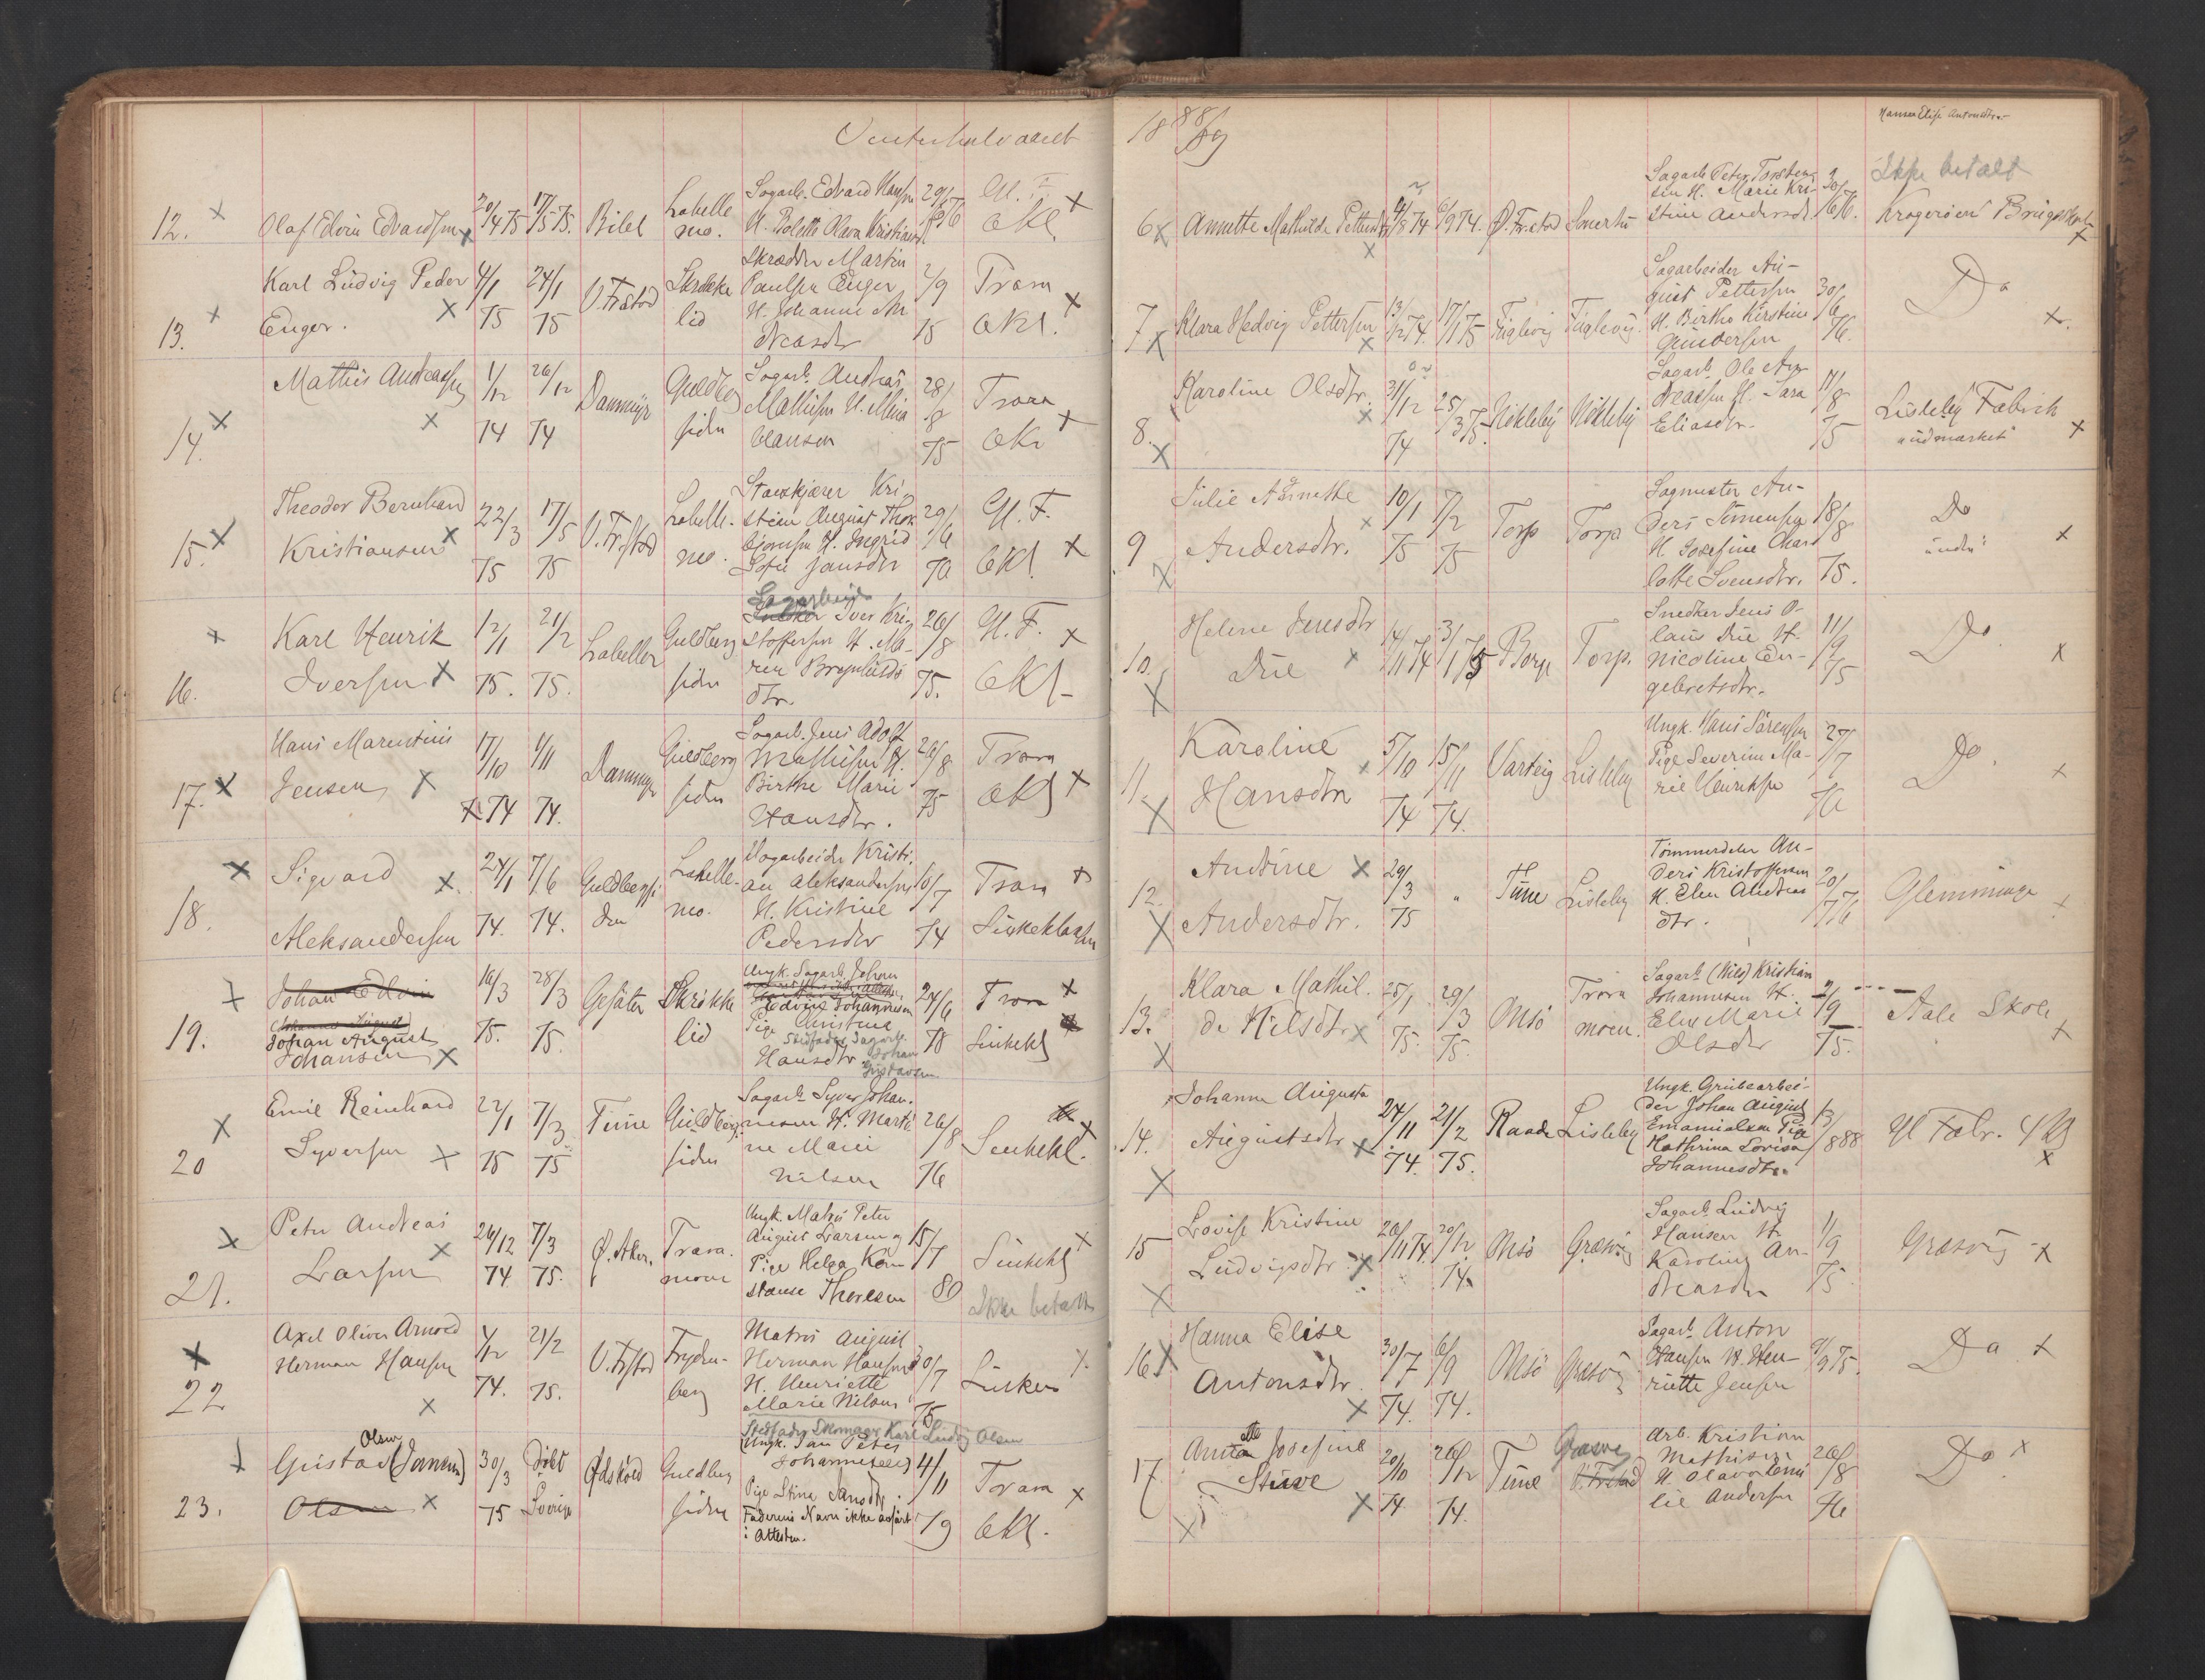 Vinterhalvaaret
12. Olaf Edvin Edvardsen 20/4 75 17/5 75. Bilet Labelle mo. Sagarb. Edvard Hansen H. Bolette Olava Kristians 29/6 76 Gl. F. OKl. X
13. Karl Ludvig Peder Enger. 4/1 75 24/1 75 V. Frstad Skrikke lid Skrædder Martin Paulsen Enger H. Johanne An dreasdtr 2/9 75 Trara OKl. X
14. Mathis Andreassen 1/12 74 26/12 74 Dammyr Guldberg siden Sagarb. Andreas Mathisen H. Mina Hansen 28/8 75 Trara OKl X
15. Theodor Bernhard Kristiansen 22/3 75 17/5 75 V. Fr.stad Labelle- mo. Kri- stian August Thor bjørnsen H. Ingrid Sofie Jansdtr 29/6 76 Gl. F. OKl. X
16. Karl Henrik Iversen 12/1 75. 21/2 75. Labellen Guldberg siden Sagarbeider Iver Kri- stoffersen H. Ma- ren Brynhilds dtr. 26/8 75. Gl. F. OKl. X
17. Hans Marentius Jensen 17/10 74 1/11 74. Dammyr Guldberg siden Sagarb. Jens Adolf Mathisen H. Birthe Marie Hansdtr. 26/8 75 Trara OKl X
18. Sigvard Aleksandersen 24/1 74. 7/6 74. Guldbergsi den Labelle- mo. Sagarbeider Kristi- an Aleksandersen H. Kristine Pedersdtr 10/7 74 Trara Sinkeklassen
19. Johan Edvin Johan August Johansen 16/3 75. 28/3 75. Gesäter Skrikke lid Ungk. Sagarb. Johan Edvin Johannesen Pige Christine Hansdtr Stedfader Sagarb. Johan Gustavsen 24/6 78 Trara Sinkekl X
20 Emil Reinhard Syversen 22/1 75 7/3 75 Tune Guldberg- siden Sagarb. Syver Johan- nesen H. Marti- ne Marie Nilsen 26/8 76 Sinkekl. X
21. Peter Andreas Larsen 26/12 74 7/3 75. Ø. Aker. Trara- moen Ungk. Matros Peter August Larsen og Pige Helga Kon stanse Thoresen 15/7 80 Sinkekl X
Ikke betalt
22 Axel Oliver Arnold Herman Hansen 4/12 74. 21/2 75. V. Frstad Fryden- berg Matros August Herman Hansen H. Henriette Marie Nilsen 30/7 75 Sinken X
23. Gustav (Jansen) Olsen Olsen 30/3 75 Döbt Sverige Ødskjöld Guldberg siden Stedfader Skomager Karl Ludvig Olsen Ungk. Jan Peter Johannesen) Pige Stine Jansdtr. Faderens Navn ikke anført i Attesten. 4/11 79 Trara OKl. X
1888/89
Hansen Elise Antonsdtr.
Ikke betalt
6 Annette Mathilde Pettersdtr 4/8 74 6/9 74. Ø. Fr.stad Smertu Sagarb. Peter Torsten- sen H. Marie Kri- stine Andersdtr. 30/6 76. Kragerøens Brugsskole X
7 Klara Hedvig Pettersen 13/12 74. 17/1 75 Fuglevig Fuglevig. Sagarbeider Au- gust Pettersen H. Birthe Kirstine Gundersen 30/6 76. Do X.
8. Karoline Olsdtr. 31/12 74 25/3 75. Nokleby Nökleby Sagarb. Ole An- dreassen H. Sara Eliasdtr. 11/8 75 Lisleby Fabrik X
9 Julie Annette Andersdtr. 10/1 75 7/2 75 Torp Torp Sagmester An- ders Simensen H. Josefine Char lotte Svensdtr. 18/8 75. Do X
10. Helene Jensdtr Due 14/11 74 3/1 75 Borge Torp. Snedker Jens O- laus Due H. Nicoline En- gebretsdtr. 11/9 75 Do X
11. Karoline Hansdtr 5/10 74 15/11 74. Varteig Lisleby Ungk. Hans Sörensen Pige Severine Ma- rie Henriksen 27/7 76 Do. X
12. Andrine Andersdtr. 29/3 75 " Tune Lisleby Tömmerdeler An- ders Kristoffersen H. Elen Andreas dtr. 20/7 76 Glemminge X
13. Klara Mathil- de Nilsdtr 25/1 75. 29/3 75. Onsö Trara moen. Sagarb. (Nils) Kristian Johannesen H. Elen Marie Olsdtr 2/9 75. Aale Skole X
14. Johanne Augusta Augustsdtr 24/11 74. 21/2 75. Raade Lisleby Ungk. Grubearbei- der Johan August Emanuelsen Pige Kathrina Lovisa Johannesdtr. 13/8 88 Gl Fabr. 4 Kl X
15 Lovise Kristine Ludvigsdtr. 26/11 74. 20/12 74. Onsö Græsvig Sagarb. Ludvig Hansen H. Karoline An- dreasdtr 1/9 75 Græsvig X
16 Hanna Elise Antonsdtr. 30/7 74. 6/9 74. Onsö Græsvig Sagarb. Anton Hansen H. Hen- riette Jensen 9/9 75. Do X
17. Annette Josefine Stuve 20/10 74 26/12 74. Tune Græsvig V. Frstad Arb. Kristian Mathisen H. Olava Emi lie Andersen 26/8 76 Do. X